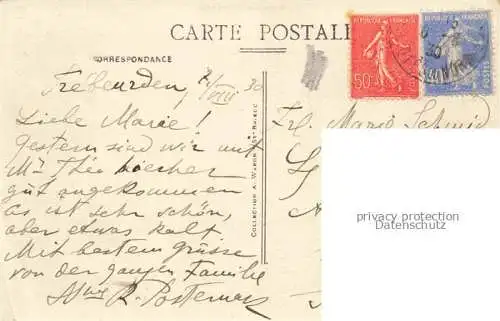 CARTE POSTALE
CORRESPONDANCE
RÉPUBLIQUE FRANÇAISE
50
RÉPUBLIQUE FRANÇAISE
POSTES
Trébeurden, 7/VIII 30
Liebe Marie!
gestern sind wir mit
Mr Théo
gut angekommen
es ist sehr schön,
aber etwas kalt
Mit besten grüsse
von der ganzen Familie
Mme R.
COLLECTION A. WARON ST-BRIEUC
Frl. Marie Schmid
privacy protection
Datenschutz